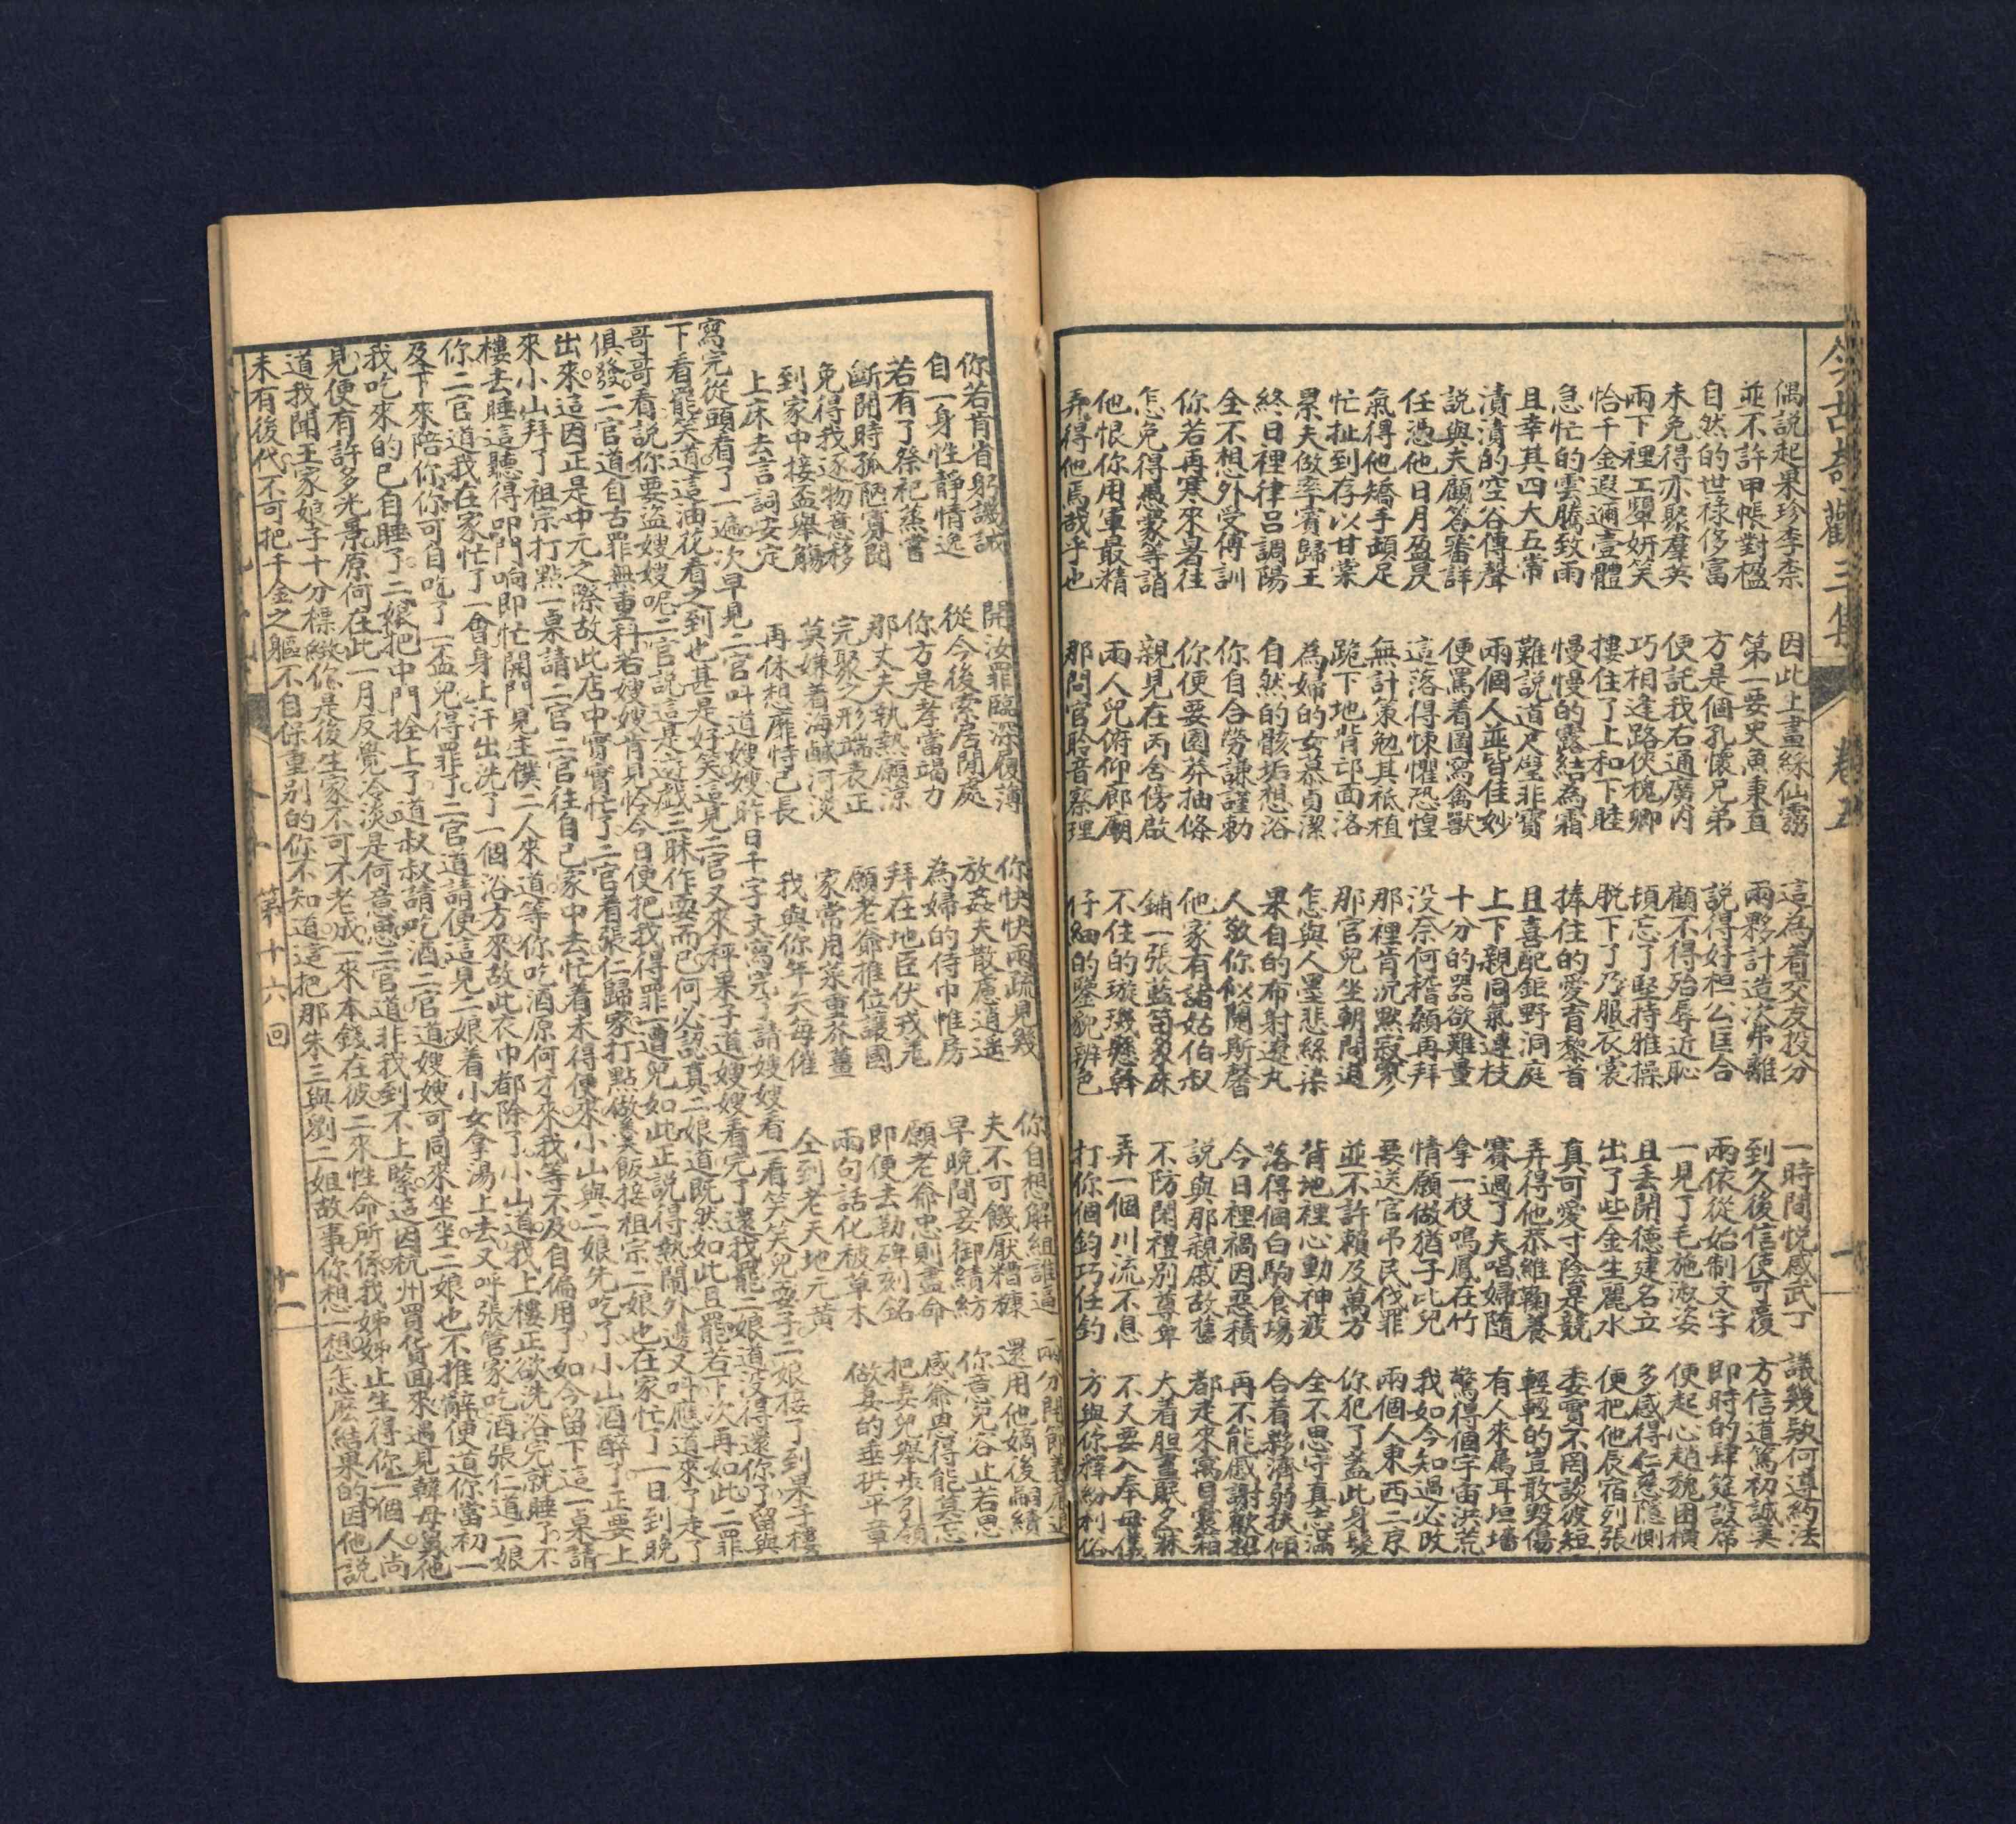 今古奇觀三集 卷五
偶説起果珍李柰 因此上畫綵仙靈 這為着交友投分 一時間悦感武丁 議幾款何遵約法
並不許甲帳對楹 第一要史魚秉直 兩夥計造次弗離 到久後信使可覆 方信道篤初誠美
自然的世祿侈富 方是個孔懷兄弟 説得好桓公匡合 兩依從始制文字 即時的肆筵設席
未免得亦聚羣英 便託我右通廣内 顧不得殆辱近恥 一見了毛施淑姿 便起心趙魏困橫
兩下裡工顰妍笑 巧相逢路俠槐卿 頓忘了堅持雅操 且丢開德建名立 多感得仁慈隱惻
恰千金遐邇壹體 摟住了上和下睦 脱下了乃服衣裳 出了些金生麗水 便把他辰宿列張
急忙的雲騰致雨 慢慢的露結為霜 捧住的愛育黎首 真可愛寸陰是競 委實不罔談彼短
且幸其四大五常 難説道尺璧非寶 且喜配鉅野洞庭 弄得他恭維鞠養 輕輕的豈敢毀傷
漬漬的空谷傳聲 兩個人並皆佳妙 上下親同氣連枝 賽過了夫唱婦隨 有人來屬耳垣墻
説與夫顧答審詳 便罵着圖寫禽獸 十分的器欲難量 拿一枝鳴鳳在竹 驚得個宇宙洪荒
任憑他日月盈昃 這落得悚懼恐惶 没奈何稽顙再拜 情願做猶子比兒 我如今知過必改
氣得他矯手頓足 無計策勉其祗植 那裡肯沉默寂寥 要送官弔民伐罪 兩個人東西二京
忙扯到存以甘棠 跪下地背邙面洛 那官兒坐朝問道 並不許賴及萬方 你犯了蓋此身髮
累夫做率賓歸王 為婦的女慕貞潔 怎與人墨悲絲染 背地裡心動神疲 全不思守真志滿
終日裡律呂調陽 自然的骸垢想浴 果自的布射遼丸 落得個白駒食場 合着夥濟弱扶傾
全不想外受傅訓 你自合勞謙謹勅 人敬你似蘭斯馨 今日裡禍因惡積 再不能慼謝歡招
你若再寒來暑往 你便要園莽抽條 他家有諸姑伯叔 説與那親戚故舊 都走來寓目囊箱
怎免得愚蒙等誚 親見在丙舍傍啟 鋪一張藍笋象床 不防閑禮别尊卑 大着胆晝眠夕寐
他恨你用軍最精 兩人兒俯仰廊廟 不住的璇璣懸斡 弄一個川流不息 不又要入奉母儀
弄得他焉哉乎也 那問官聆音察理 仔細的鑒貌辨色 打你個鈞巧任釣 方與你釋紛利俗
你若肯省躬譏誡 開汝罪臨深履薄 你快快兩疏見幾 你自想解組誰逼 兩分開節義廉退
自一身性靜情逸 從今後索居閒處 放姦夫散慮逍遙 夫不可饑厭糟糠 還用他嫡後嗣續
若有了祭祀蒸嘗 你方是孝當竭力 為婦的侍巾帷房 早晚間妾御績紡 你音宛谷止若思
斷開時孤陋寡聞 那丈夫執熱願涼 拜在地臣伏戎羌 願老爺忠則盡命 感爺恩得能莫忘
免得我逐物意移 完聚之形端表正 願老爺推位讓國 即便去勒碑刻銘 把妻兒舉步引領
到家中接盃舉觴 莫嫌着海鹹河淡 家常用菜重芥薑 兩句話化被草木 做妾的垂拱平章
上床去言詞安定 再休想靡恃己長 我與你年矢每催 全到老天地元黄
寫完從頭看了一遍。次早見二官叫道嫂嫂昨日千字文寫完了請嫂嫂看一看笑笑兒要子二娘接了到果子樓
下看罷笑道這油花看之到也甚是好笑這見二官又來秤果子道嫂嫂看完了還我罷二娘道没得還你了留與
哥哥看説你要盗嫂嫂呢二官説這是遊戲三昧作耍而已何必認真二娘道既然如此且罷若下次再如此二罪
俱發。二官道自古罪無重科若嫂嫂肯見憐今日便把我得罪一遭兒如此正説得熱鬧外邊又叫應道來了走了
出來。這因正是中元之際故此店中實實忙了二官着張仁歸家打點做羹飯接祖宗二娘也在家忙了一日到晚
來小山拜了祖宗打點一桌請二官二官往自己家中去忙着未得便來小山與二娘先吃了小山酒醉了正要上
樓去睡這聽得叩門响即忙開門見主僕二人來道等你吃酒原何才來我等不及自偏用了如今留下這一桌請
你二官道我在家忙了一會身上汗出洗了一個浴方來故此衣巾都除了小山道我上樓正欲洗浴完就睡了不
及下來陪你你可自吃了一盃兒得罪了二官道請便這見二娘着小女拿湯上去又呼張管家吃酒張仁道一娘
我吃來的已自睡了二娘把中門拴上了道叔叔請吃酒二官道嫂嫂可同來坐坐二娘也不推辭便道你當初一
見便有許多光景原何在此一月反覺冷淡是何意思二官道非我到不上緊這因杭州買貨回來遇見韓母舅他
道我聞王家娘子十分標緻你是後生家不可不老成一來本錢在彼二來性命所係我姊姊止生得你一個人尚
未有後代不可把千金之軀不自保重别的你不知道這把那朱三與劉二姐故事你想一想怎麼結果的因他説
第十六回 十一